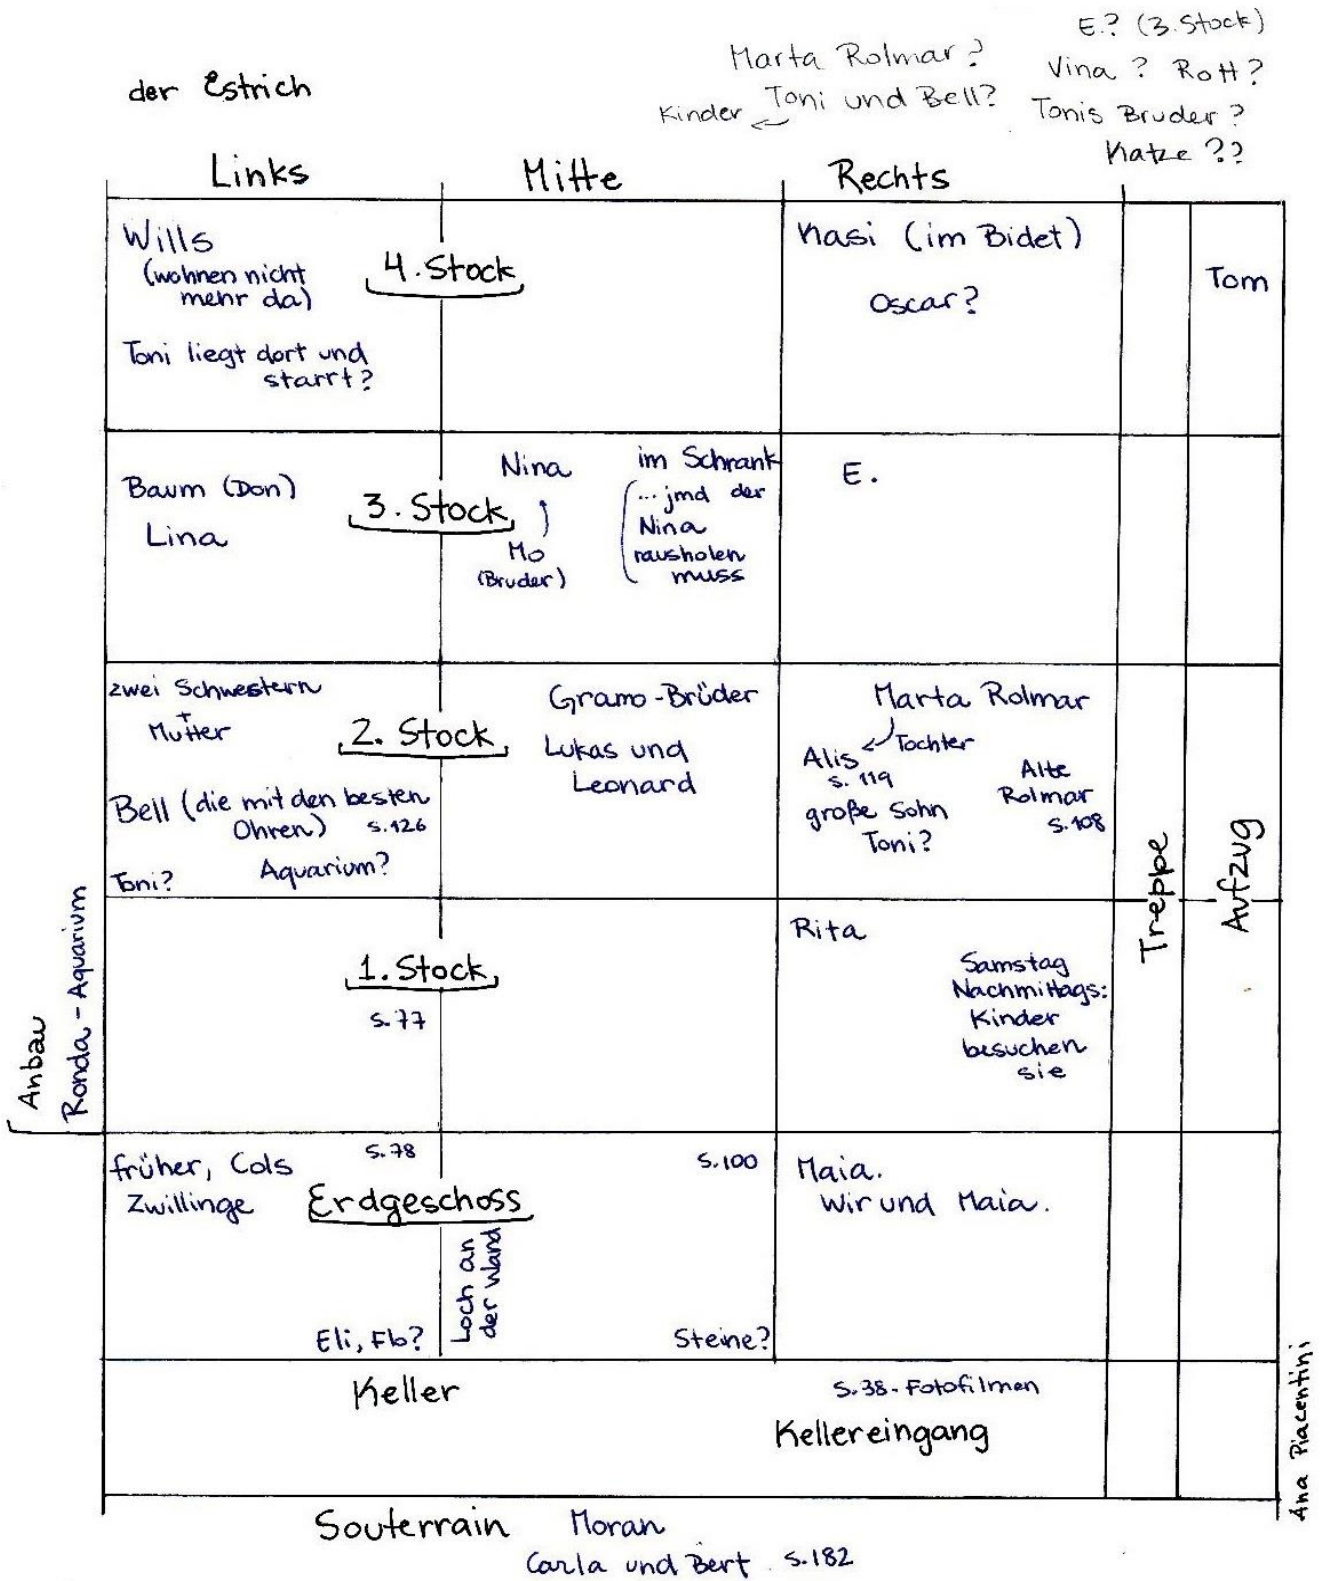 E.? (3. Stock)
Marta Rolmar?
Vina? Rott?
der Estrich
Kinder ← Toni und Bell?
Tonis Bruder?
Katze??
Links
Mitte
Rechts
Wills
(wohnen nicht
mehr da)
Toni liegt dort und
starrt?
4. Stock
Kasi (im Bidet)
Oscar?
Tom
Baum (Don)
Lina
3. Stock
Nina
Mo
(Bruder)
im Schrank
...jmd der
Nina
rausholen
muss
E.
zwei Schwestern
+
Mutter
2. Stock
Bell (die mit den besten
Ohren) S.126
Toni? Aquarium?
Gramo-Brüder
Lukas und
Leonard
Marta Rolmar
Alis ← Tochter
S. 119
große Sohn
Toni?
Alte
Rolmar
S.108
Treppe
Aufzug
Anbau
Ronda-Aquarium
1. Stock
S.77
Rita
Samstag
Nachmittags:
Kinder
besuchen
sie
früher, Cols
Zwillinge
S.78
Erdgeschoss
Loch an
der Wand
Eli, Flo?
S.100
Steine?
Maia.
Wir und Maia.
Keller
S.38-Fotofilmen
Kellereingang
Souterrain Moran
Carla und Bert S.182
Ana Piacentini